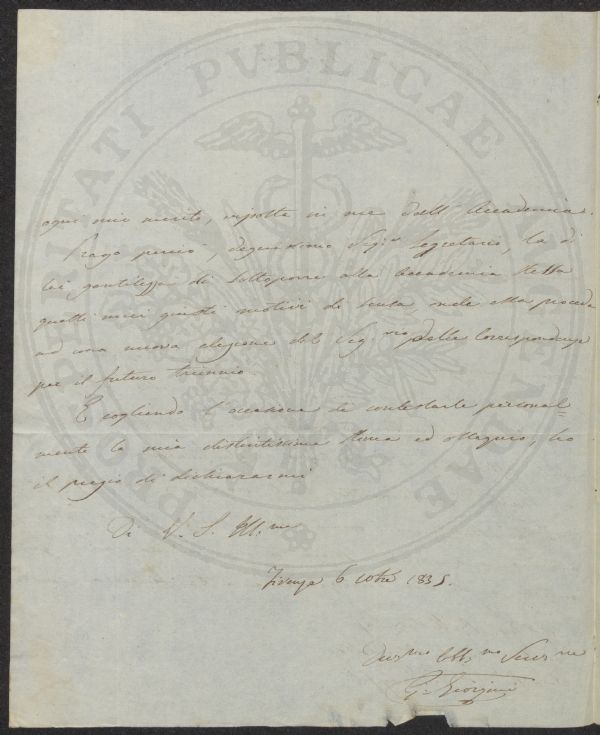 ogni mio merito, riposta in me dall' Accademia.
Prego perciò, degnissimo Sigr. Segretario, la di
lei gentilezza di sottoporre alla Accademia stessa
questi miei giusti motivi di scusa, onde essa proceda
ad una nuova elezione del Segrio. delle Corrispondenze
per il futuro triennio.
E cogliendo l'occasione di contestarle personal=
mente la mia distintissima stima ed ossequio, ho
il pregio di dichiararmi
Di V. S. Ill.ma
Firenze 6 8bre 1835.
Dev.mo Obb.mo Serv.re
G. Giorgini
PROSPERITATI PVBLICAE